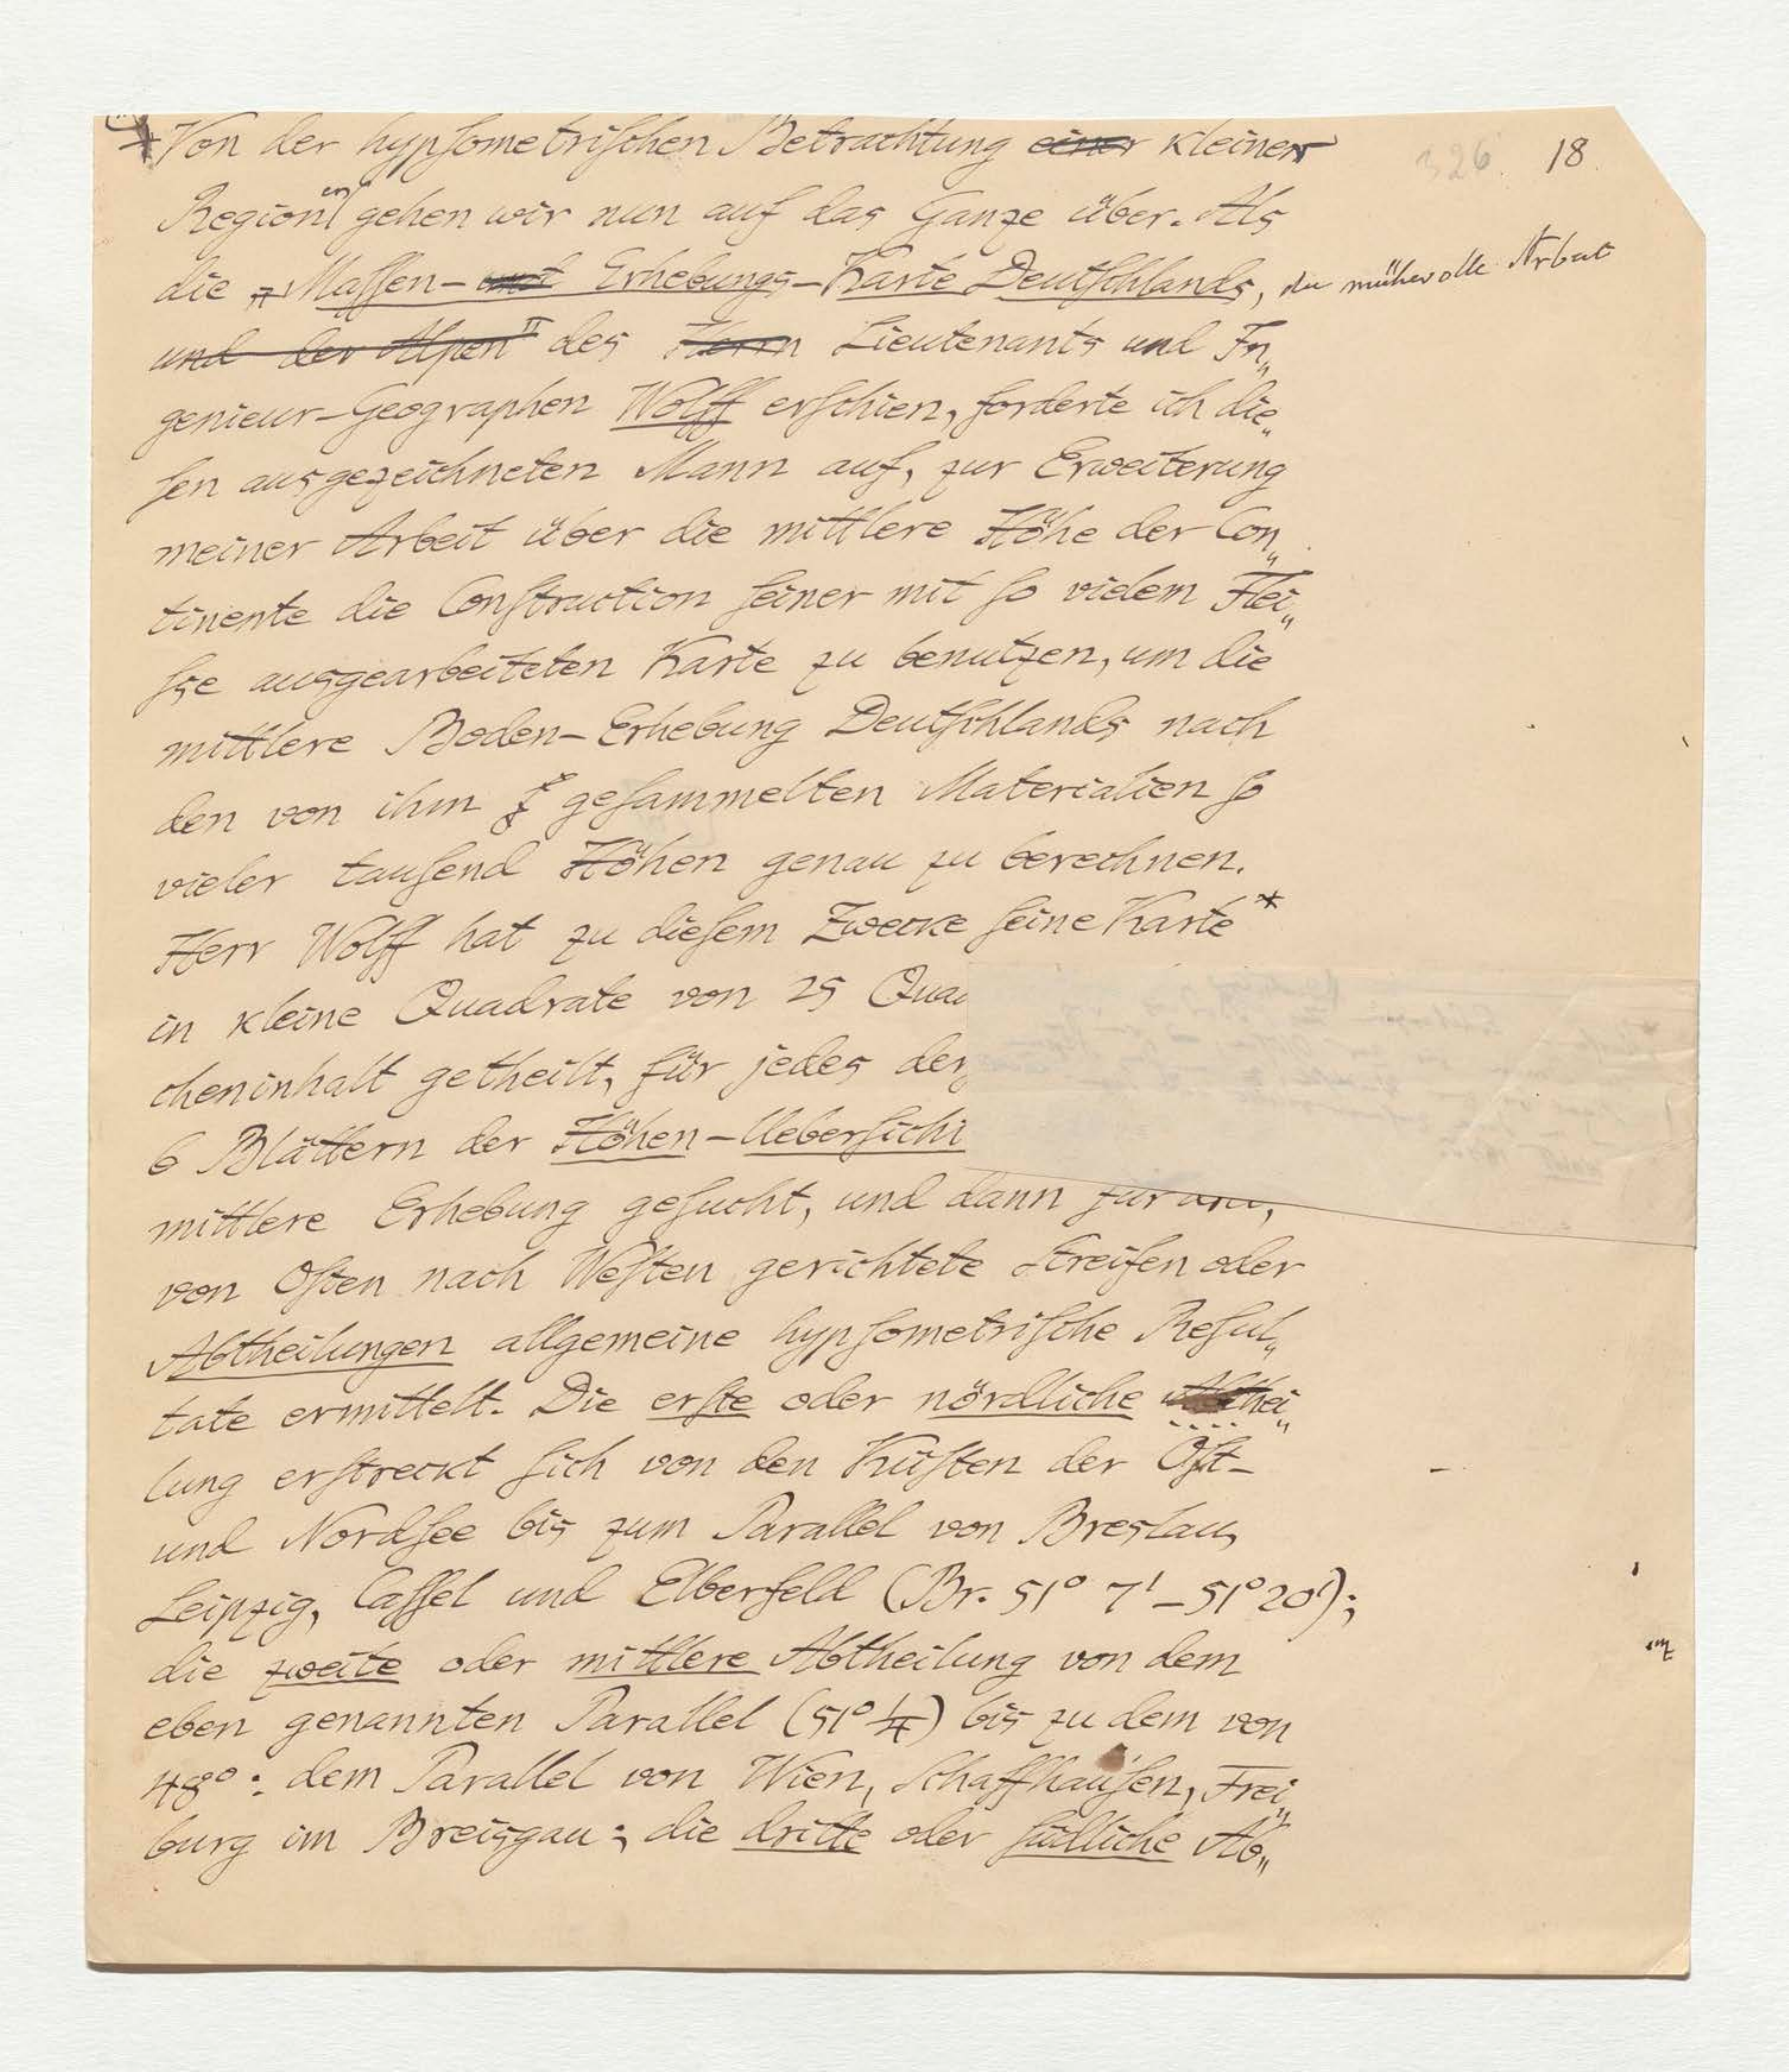 326. 18.
Von der hypsometrischen Betrachtung einer kleiner
Regionen gehen wir nun auf das Ganze über. Als
die Massen- und Erhebungs-Karte Deutschlands, die mühevolle Arbeit
und der Alpen" des Herrn Lieutenants und In„
genieur-Geographen Wolff erschien, forderte ich die„
sen ausgezeichneten Mann auf, zur Erweiterung
meiner Arbeit über die mittlere Höhe der Con„
tinente die Construction seiner mit so vielem Flei„
sse ausgearbeiteten Karte zu benutzen, um die
mittlere Boden-Erhebung Deutschlands nach
den von ihm gesammelten Materialien so
vieler tausend Höhen genau zu berechnen.
Herr Wolff hat zu diesem Zwecke seine Karte*
in kleine Quadrate von 25 Qua
cheninhalt getheilt, für jedes der
6 Blättern der Höhen-Uebersich
mittlere Erhebung gesucht, und dann für
von Osten nach Westen gerichtete Streifen oder
Abtheilungen allgemeine hypsometrische Resul„
tate ermittelt. Die erste oder nördliche Abthei„
lung erstreckt sich von den Küsten der Ost-
und Nordsee bis zum Parallel von Breslau,
Leipzig, Cassel und Elberfeld (Br. 51° 7' – 51° 20');
die zweite oder mittlere Abtheilung von dem
eben genannten Parallel (51° 1/4) bis zu dem von
48°: dem Parallel von Wien, Schaffhausen, Frei„
burg im Breisgau; die dritte oder südliche Ab„